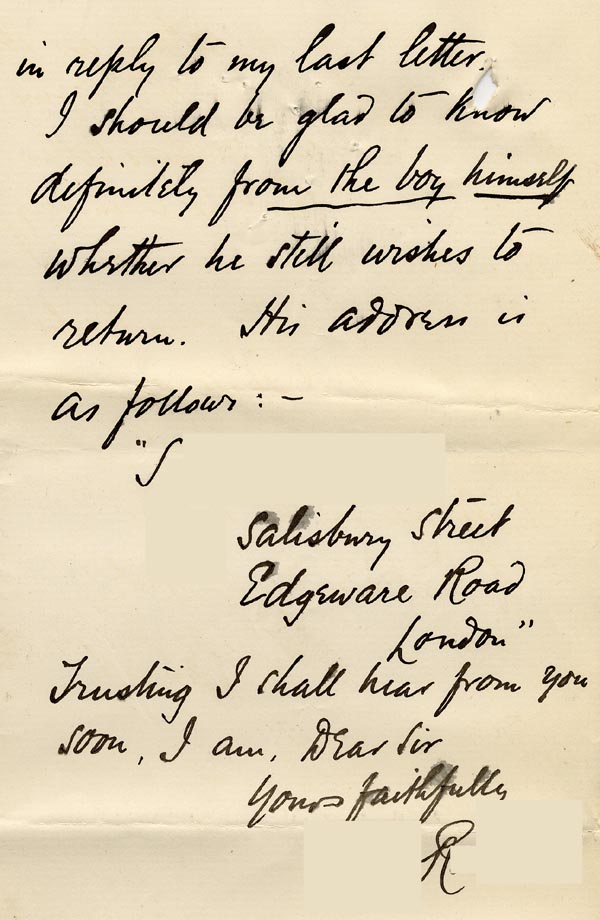 in reply to my last letter.
I should be glad to know
definitely from the boy himself
whether he still wishes to
return. His address is
as follows: -
"S
Salisbury Street
Edgeware Road
London"
Trusting I shall hear from you
soon, I am, Dear Sir
Yours faithfully
R